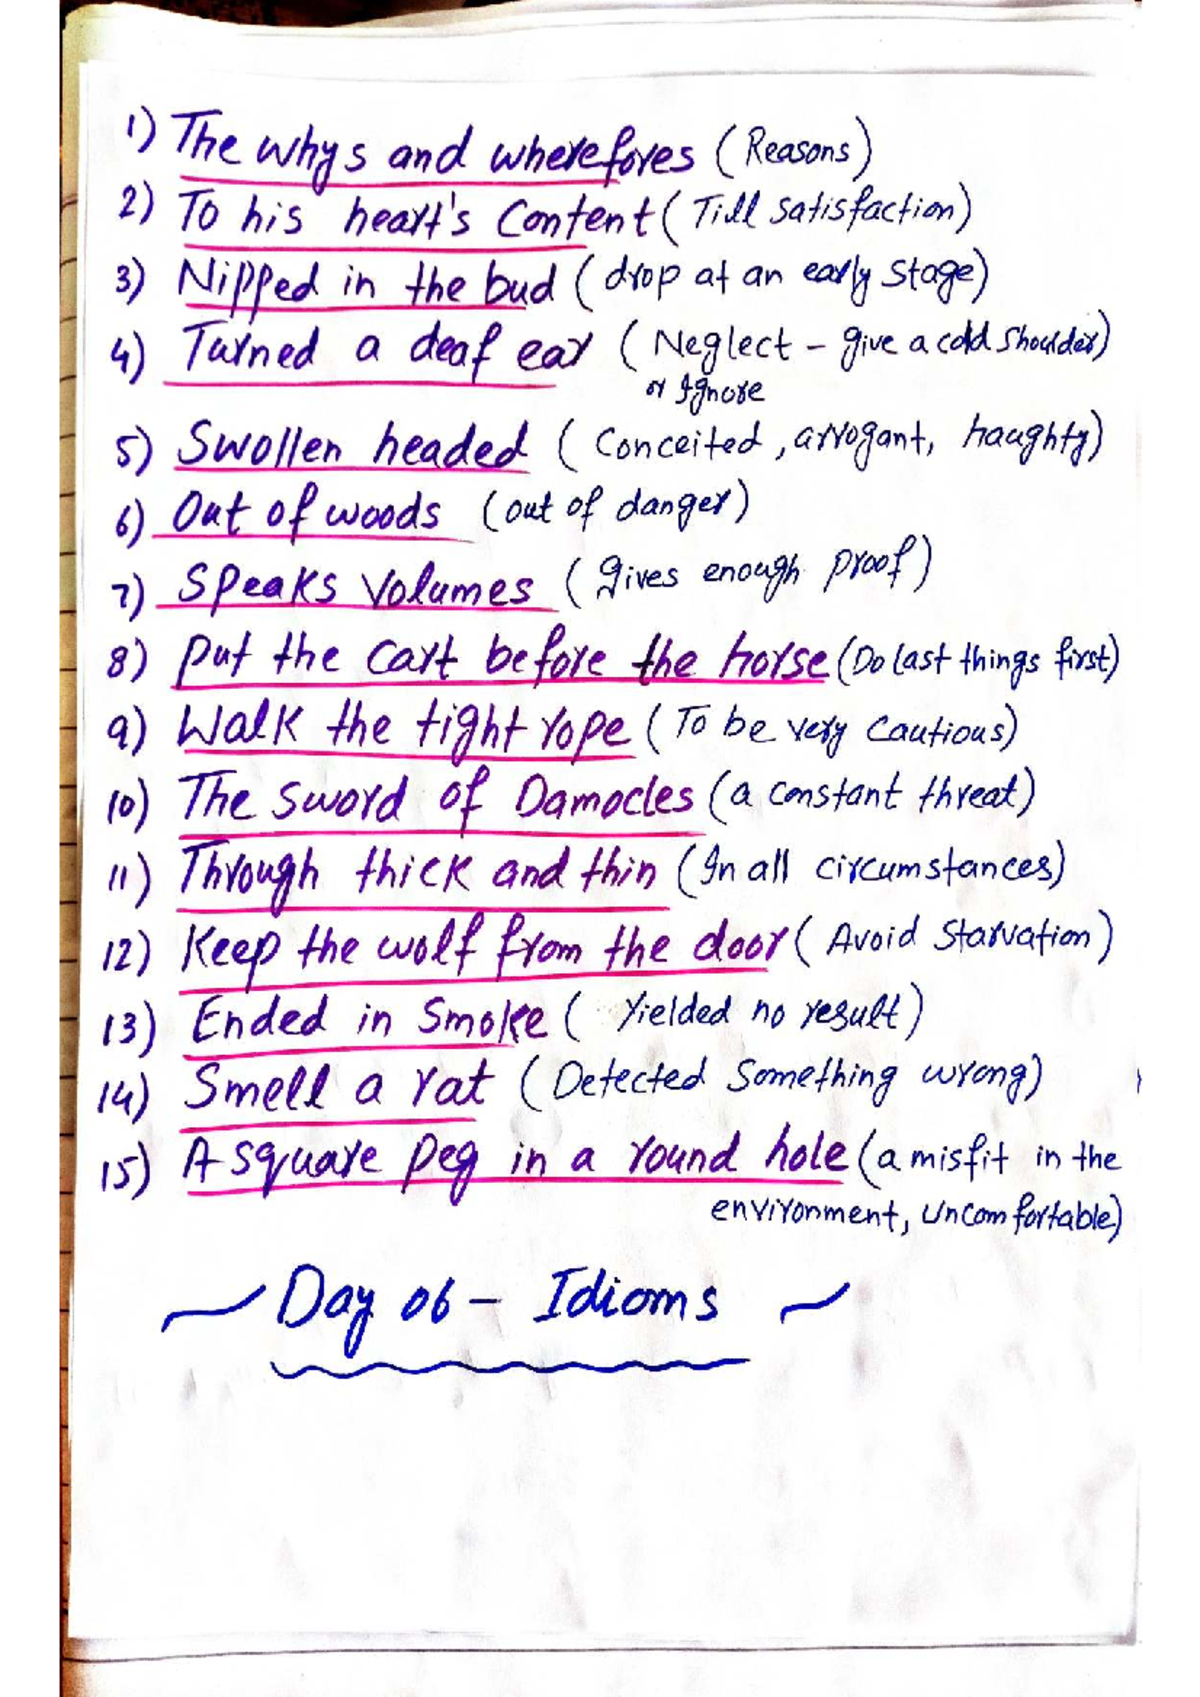 1) The whys and wherefores (Reasons)
2) To his heart's Content (Till satisfaction)
3) Nipped in the bud (drop at an early stage)
4) Turned a deaf ear (Neglect - give a cold shoulder)
or Ignore
5) Swollen headed (Conceited, arrogant, haughty)
6) Out of woods (out of danger)
7) Speaks Volumes (gives enough proof)
8) put the cart before the horse (Do last things first)
9) Walk the tight rope (To be very cautious)
10) The Sword of Damocles (a constant threat)
11) Through thick and thin (In all circumstances)
12) Keep the wolf from the door (Avoid Starvation)
13) Ended in Smoke (Yielded no result)
14) Smell a rat (Detected Something wrong)
15) A square peg in a round hole (a misfit in the
environment, uncomfortable)
Day 06 - Idioms